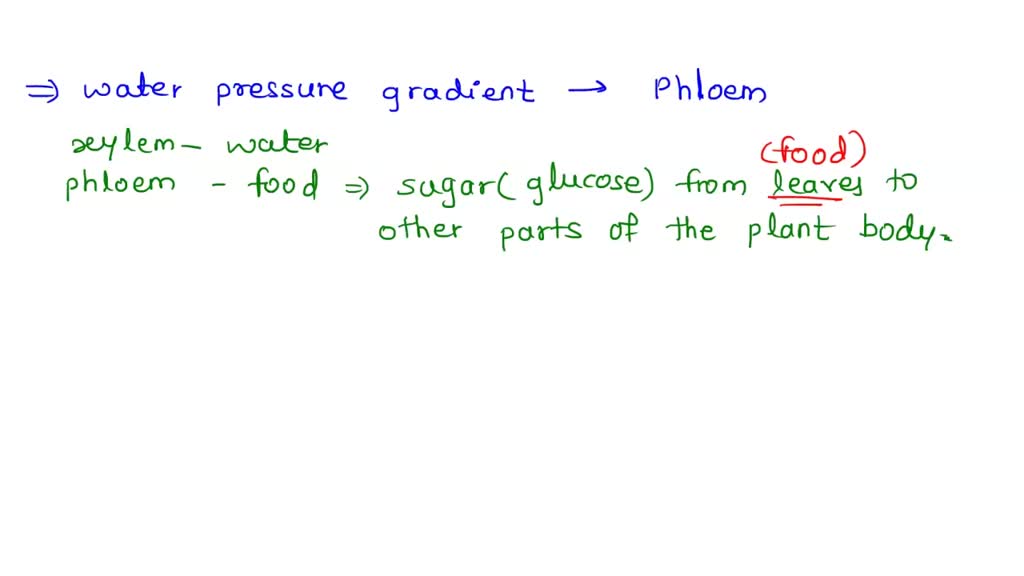 ⇒ water pressure gradient → Phloem
xeylem - water
(food)
phloem - food ⇒ sugar( glucose) from leaves to
other parts of the plant body.